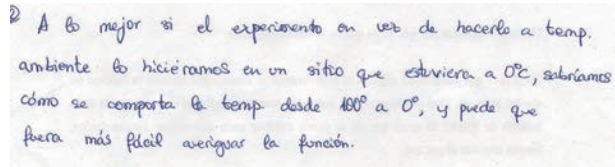 ② A lo mejor si el experimento en vez de hacerlo a temp.
ambiente lo hiciéramos en un sitio que estuviera a 0ºC, sabríamos
cómo se comporta la temp. desde 100º a 0º, y puede que
fuera más fácil averiguar la función.